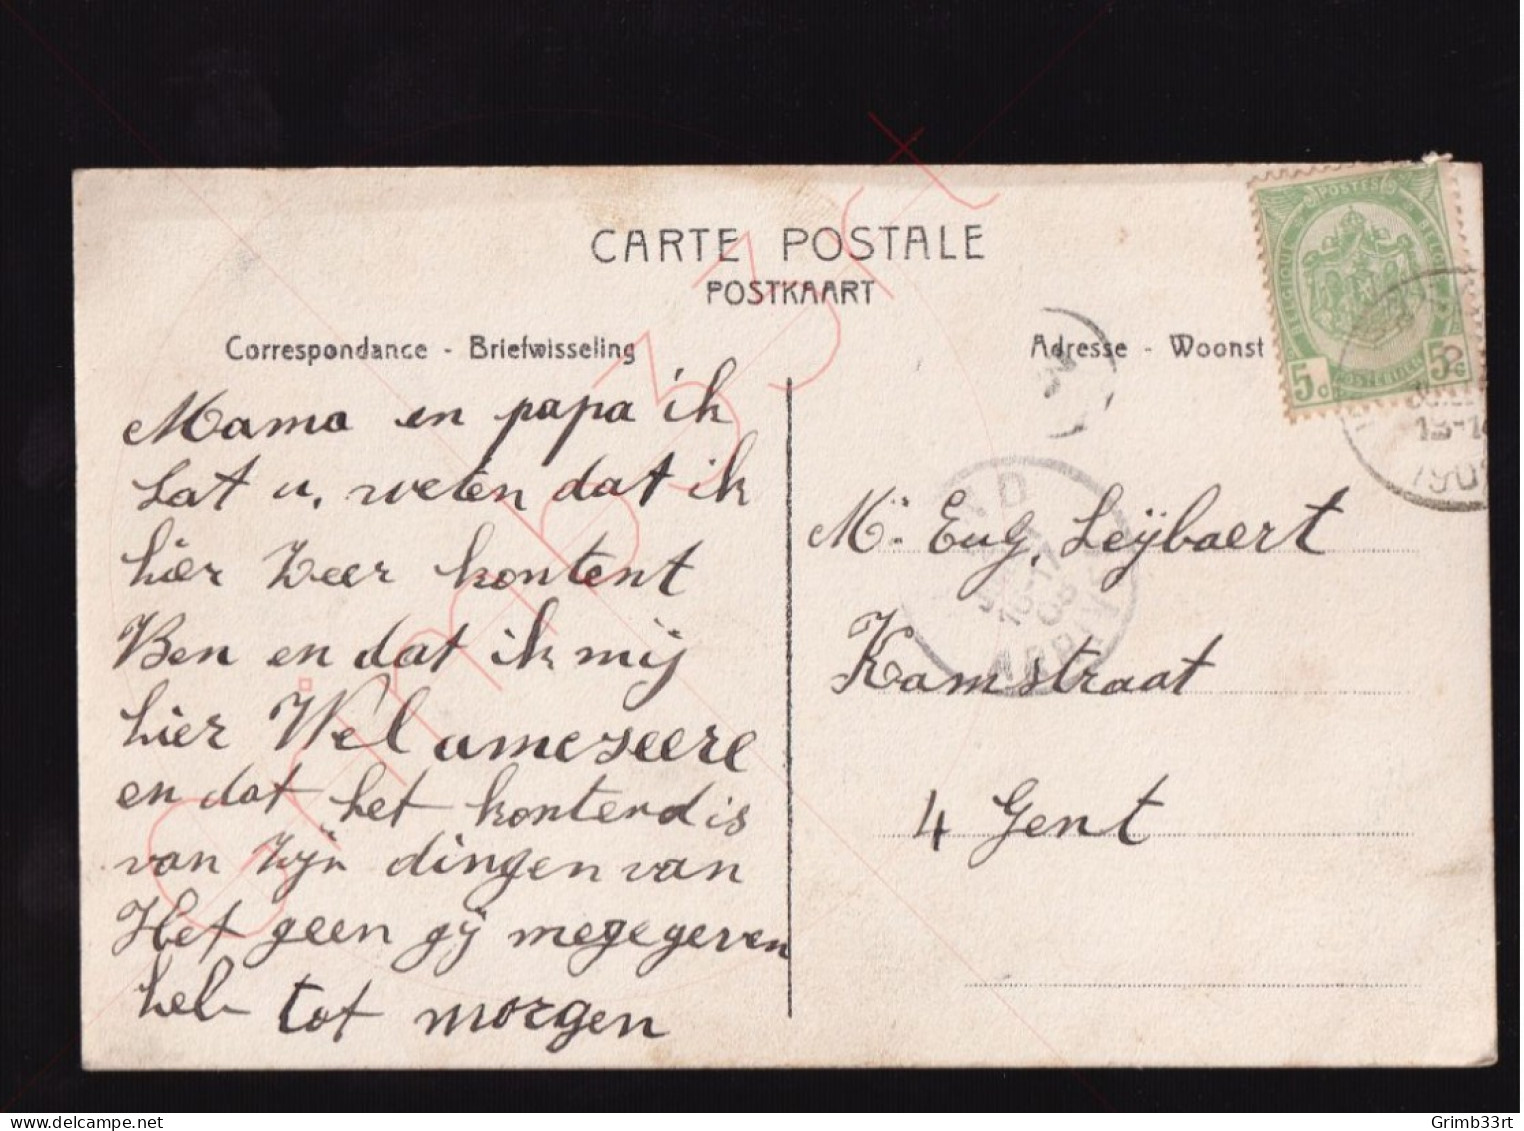 CARTE POSTALE
POSTKAART
Correspondance - Briefwisseling
Adresse - Woonst
Mama en papa ik
Lat u, weten dat ik
hier Zeer kontent
Ben en dat ik mij
hier Wel amezeere
en dat het kontend is
van Zijn dingen van
Het geen gij megegeven
heb tot morgen
Mr. Eug. Leÿbaert
Kamstraat
4 Gent
POSTES
BELGIQUE
5c 5c
ARRIV
Grimb33rt
Grimb33rt